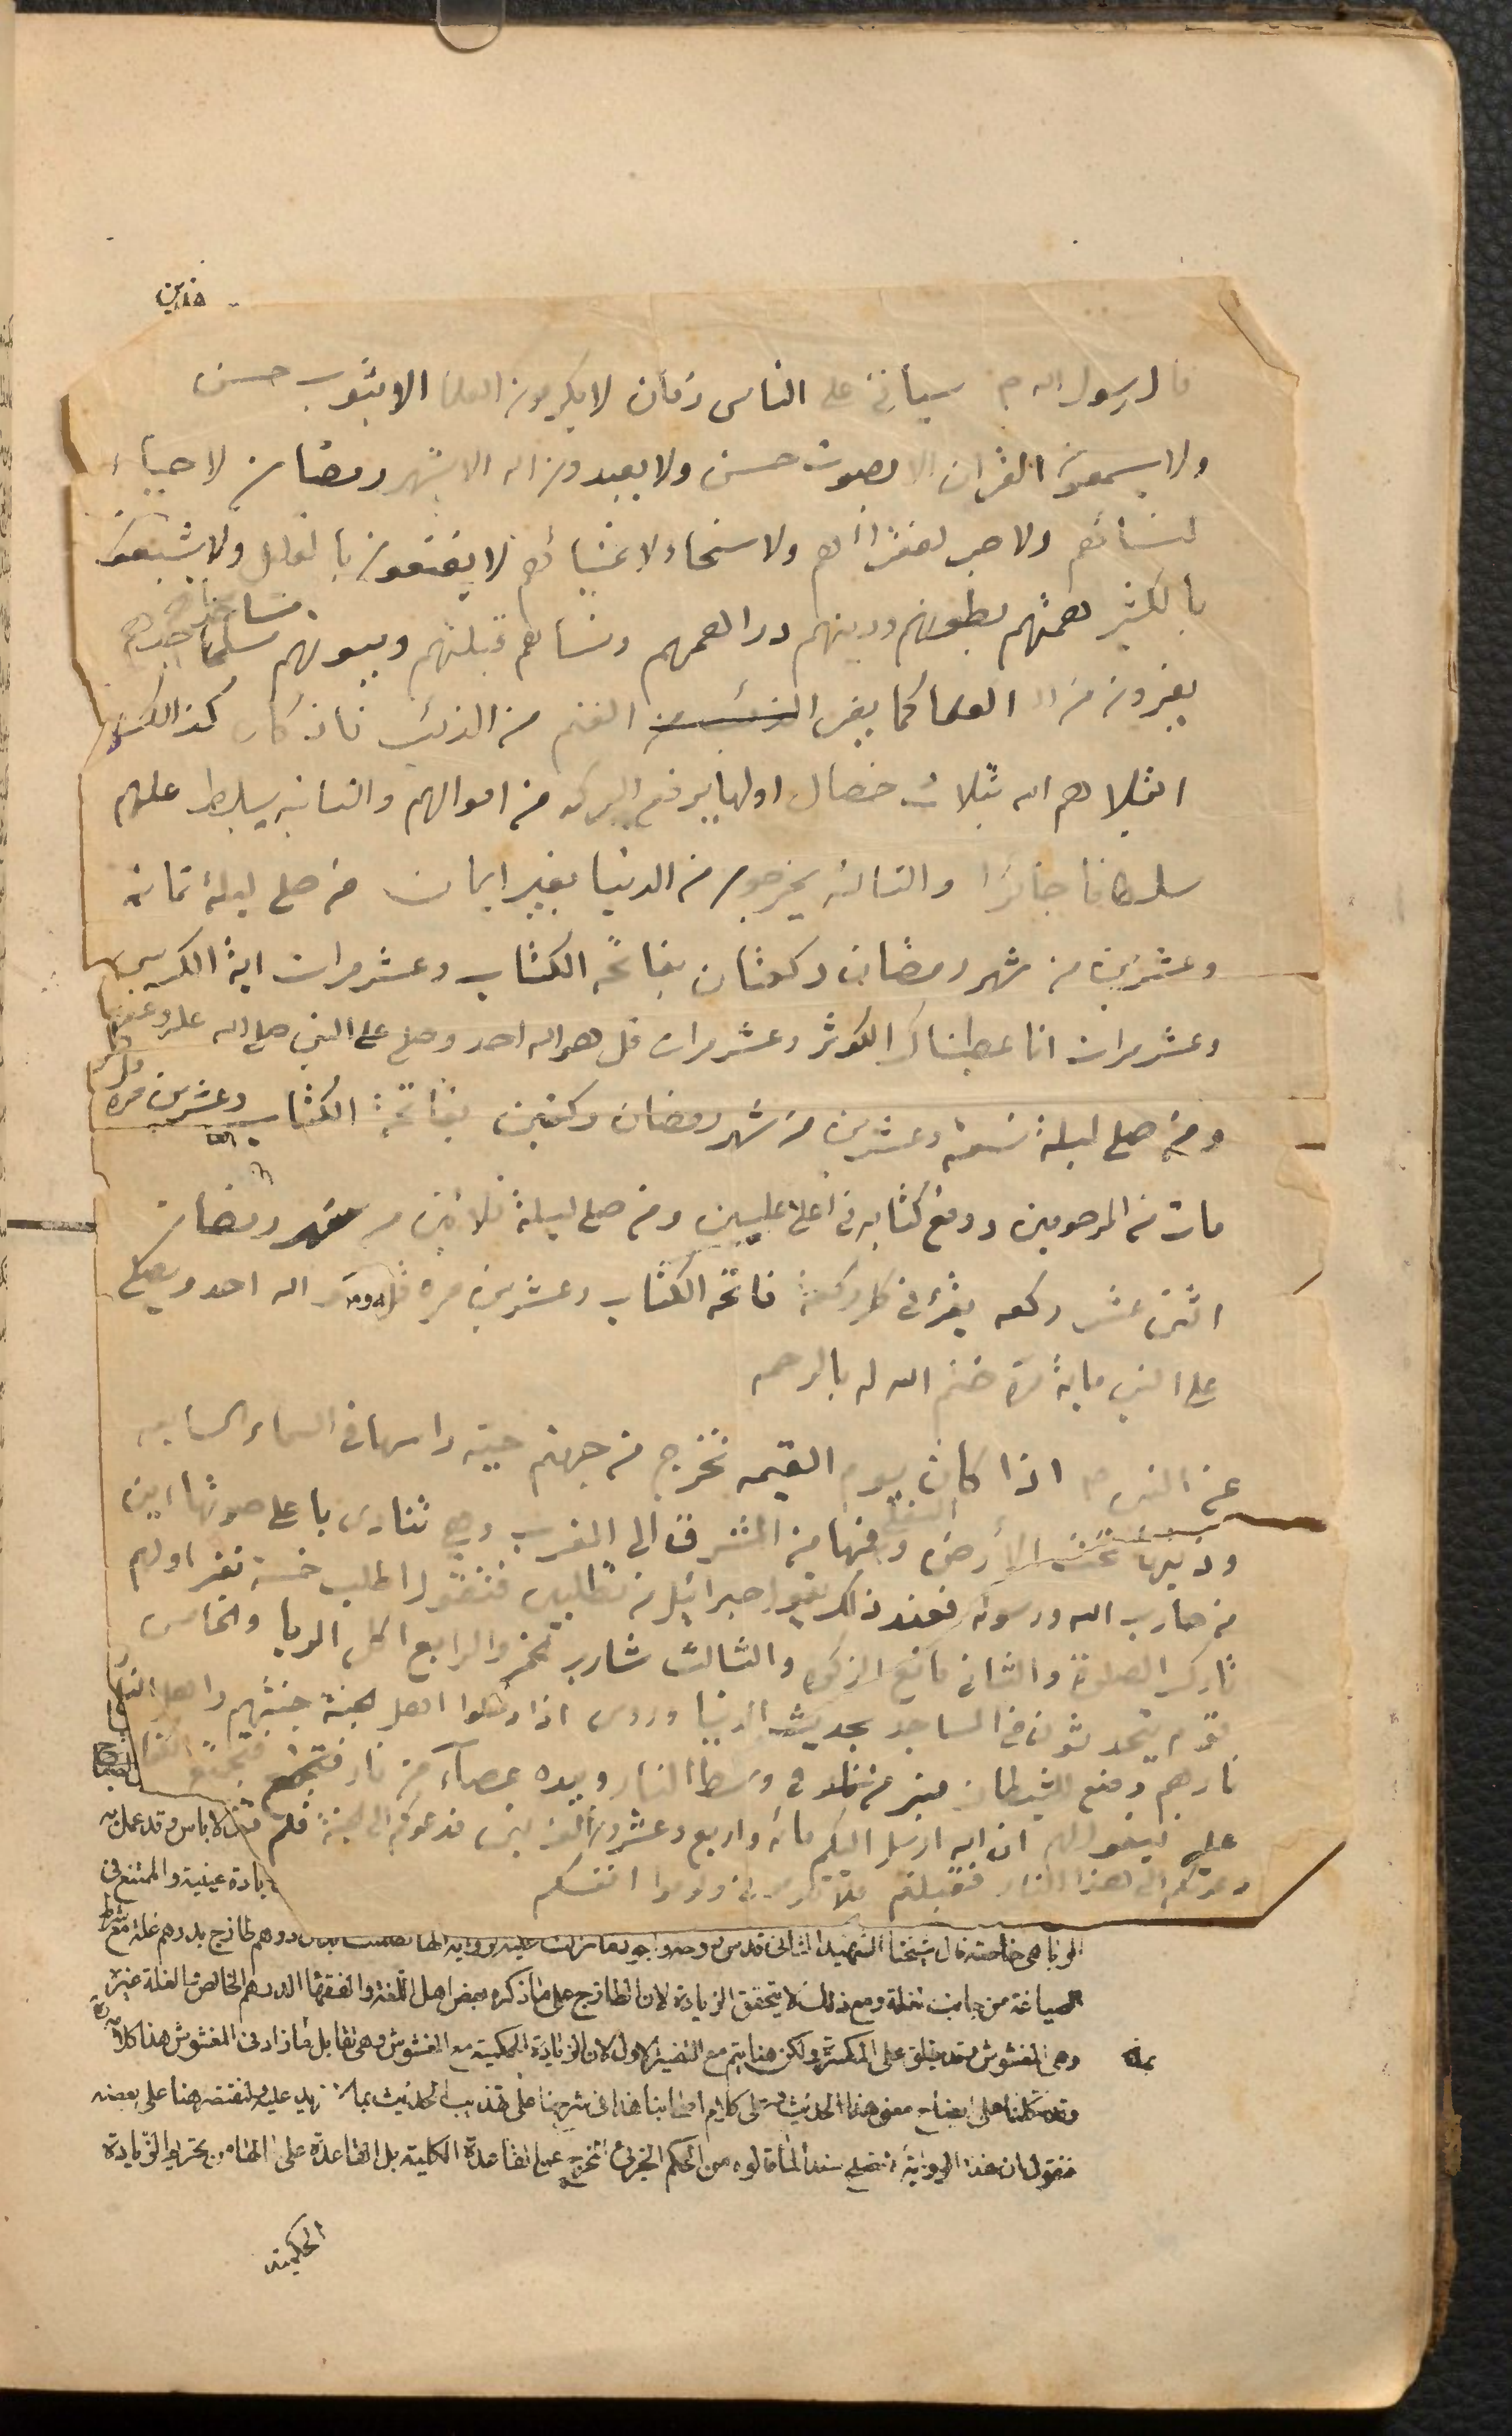 قال رسول اله ص سيأتي على الناس زمان لا يكرمون العلما الا بثوب حسن
ولا يسمعون القرآن الا بصوت حسن ولا يعبدون اله الا بشهر رمضان لا حياء
لنسائهم ولا صبر لفقرائهم ولا سخاء لاغنيائهم لا يقنعون بالقليل ولا يشبعون
بالكثير همتهم بطونهم ودينهم دراهمهم ونسائهم قبلتهم وبيوتهم مساجدهم
يفرون من العلما كما يفر الغنم من الذئب فاذ كان كذالك
ابتلاهم اله بثلاث خصال اولها يرفع البركه من اموالهم والثانيه يسلط عليهم
سلطانا جائرا والثالثه يخرجون من الدنيا بغير ايمان من صلى ليلة ثمانيه
وعشرين من شهر رمضان ركعتان بفاتحه الكتاب وعشر مرات اية الكرسي
وعشر مرات انا عطيناك الكوثر وعشر مرات قل هو اله احد وصلى على النبي صلى اله عليه
ومن صلى ليلة تسعة وعشرين من شهر رمضان ركعتين بفاتحة الكتاب وعشرين مرة
مات من المرحومين ورفع كتابه في اعلى عليين ومن صلى ليلة ثلاثين من شهر رمضان
اثنى عشر ركعه يقرأ في كل ركعة فاتحه الكتاب وعشرين مره قل هو اله احد ويصلي
على النبي ماية مرة ختم اله له بالرحمه
عن النبي ص اذا كان يوم القيمه تخرج من جهنم حية راسها في السماء السابعه
وذنبها تحت الأرض السفلى وفمها من المشرق الى المغرب وهي تنادى باعلى صوتها اين
من حارب اله ورسوله فعند ذلك يقول جبرائيل من تطلبين فتقول اطلب خمسة نفر اولهم
تارك الصلوة والثاني مانع الزكوه والثالث شارب الخمر والرابع اكل الربا والخامس
قوم يتحدثون في المساجد بحديث الدنيا وروى اذا دخلوا اهل الجنة جنتهم واهل النار
نارهم وضع للشيطان منبر من نار في وسط النار وبيده عصاء من نار فتجتمع
عليه فيقول لهم ان اله ارسل اليكم مائه واربع وعشرون الف نبي فدعوكم الى الجنة فلم
دعوتكم الى هذا النار فقبلتم فلا تلوموني ولوموا انفسكم
لا باس وقد عمل به
زيادة عينية والممتنع في
الربا هي خاصته قال شيخنا الشهيد الثاني قدس روحه
الصياغة من جانب الغلة ومع ذلك لا يتحقق الزيادة لان الطازج على ما ذكره بعض اهل اللغة والفقهاء الدرهم الخالص والغلة غيره
وهي المغشوش وقد يطلق على المكسرة ولكن هنا يتم مع التفسير الاول لان الزيادة الحكمية مع المغشوش وهي تقابل ما زاد في المغشوش هذا كلامه
وقد تكلمنا على ايضاح معنى هذا الحديث وعلى كلام اصحابنا هذا في شرحنا على تهذيب الحديث بما لا مزيد عليه ولنقتصر هنا على بعضه
فنقول ان هذا الرواية تصلح سندا لما قالوه من الحكم الجزئي عن القاعدة الكلية بل القاعدة على
الحكمية